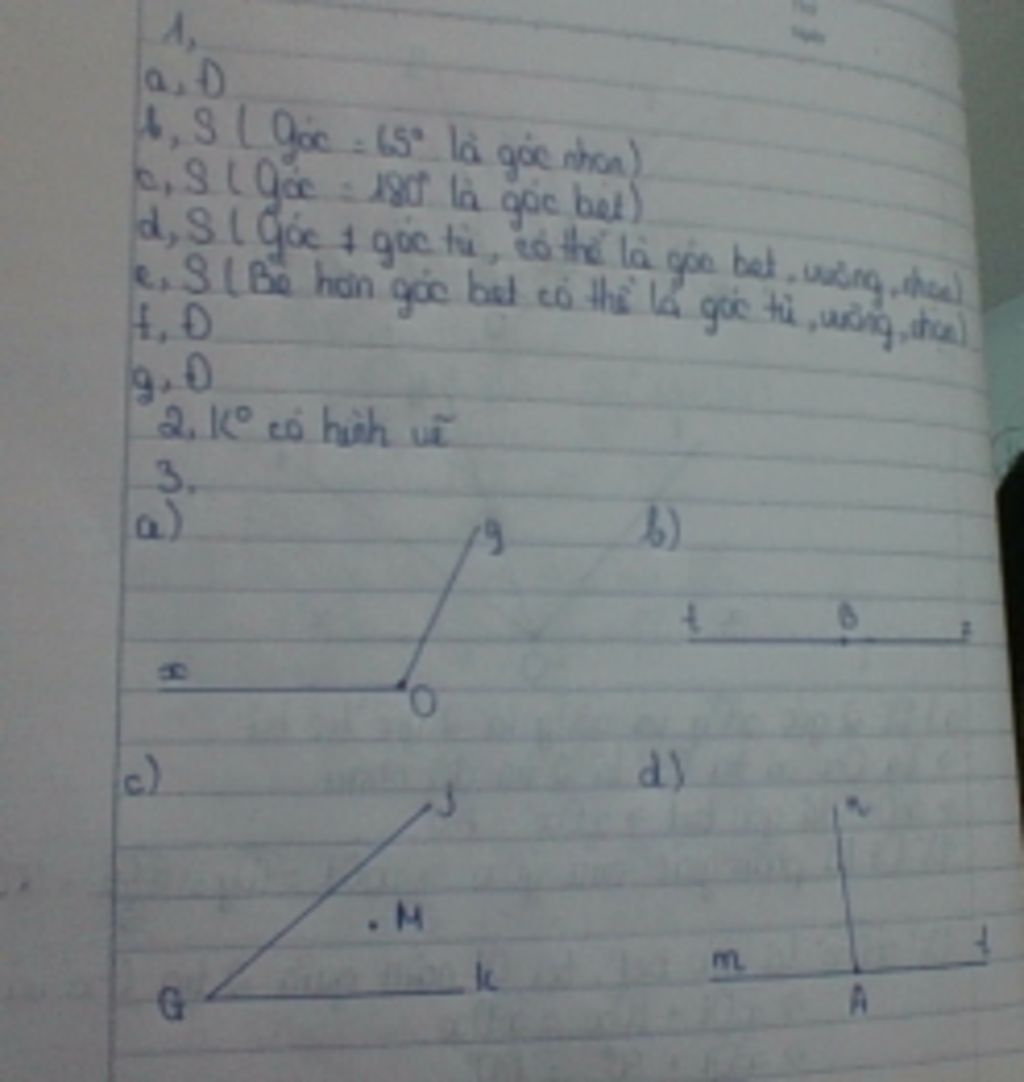 1,
a, Đ
b, S ( Góc = 65° là góc nhọn)
c, S ( Góc = 180° là góc bẹt)
d, S ( Góc ≠ góc tù, có thể là góc bẹt, vuông, nhọn)
e, S ( Bé hơn góc bẹt có thể là góc tù, vuông, nhọn)
f, Đ
g, Đ
2, K° có hình vẽ
3.
a) b)
y
t B z
x O
c) d)
J
M
G k
m A t